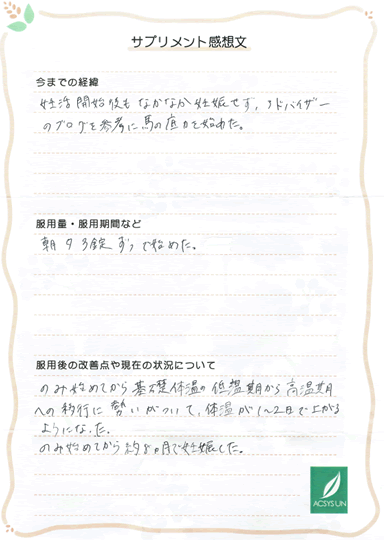 サプリメント感想文
今までの経緯
妊活開始後もなかなか妊娠せず、アドバイザー
のブログを参考に馬の直力を始めた。
服用量・服用期間など
朝夕3錠ずつで始めた。
服用後の改善点や現在の状況について
のみ始めてから基礎体温の低温期から高温期
への移行に勢いがついて、体温が1～2日で上がる
ようになった。
のみ始めてから約8ヵ月で妊娠した。
ACSYS UN